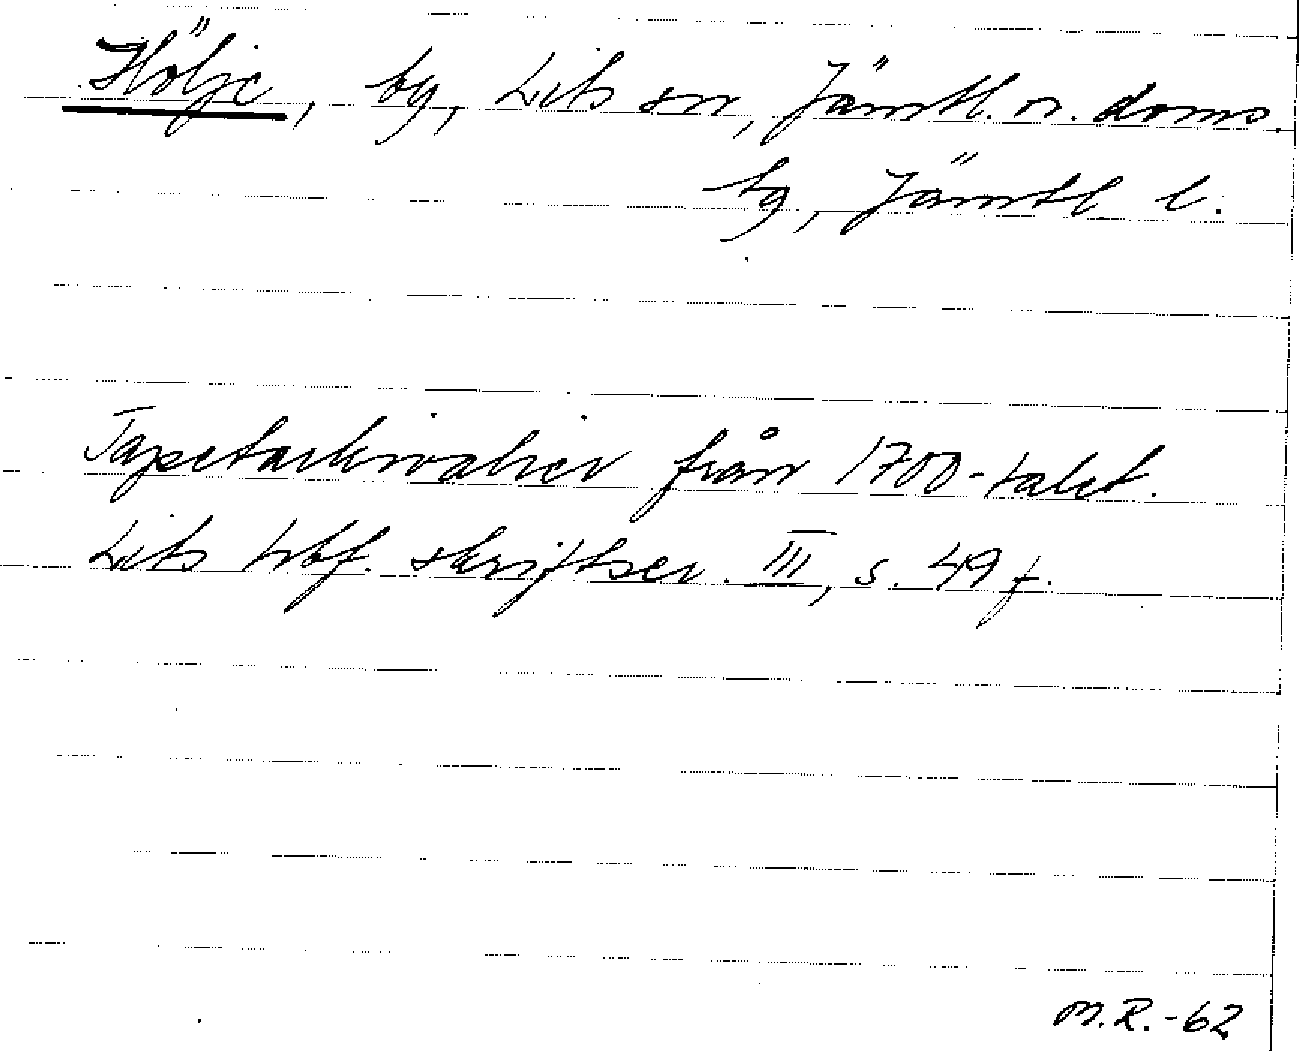 Hölje, by, Lits sn, Jämtl. n. doms.
by, Jämtl l.
Tapetarkivalier från 1700-talet.
Lits hbf. skriftser. III, s. 49 f.
M.R.-62